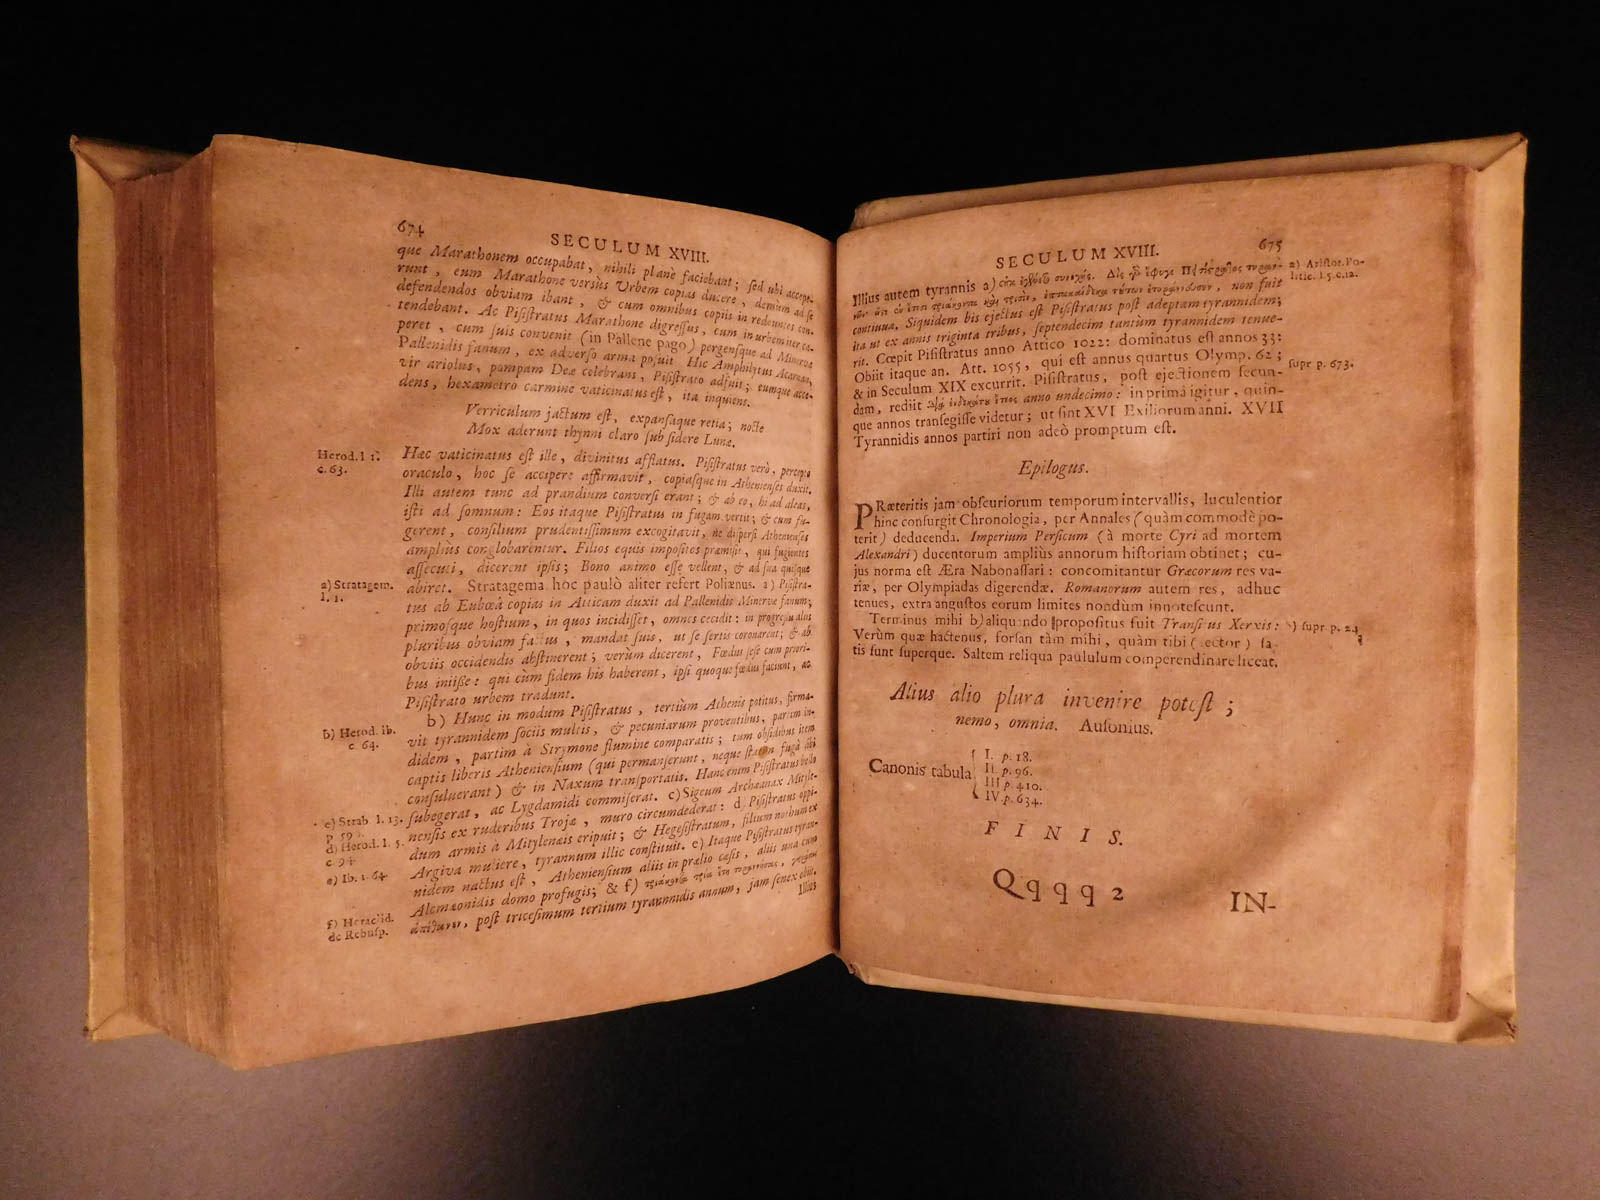 674
SECULUM XVIII.
que Marathonem occupabat, nihili planè faciebant; sed ubi accepe-
runt, eum Marathone versus Urbem copias ducere, demùm ad se
defendendos obviam ibant, & cum omnibus copiis in redeuntes con-
tendebant. Ac Pisistratus Marathone digressus, cum in urbem iter ca-
peret, cum suis convenit (in Pallene pago) pergensque ad Minervæ
Pallenidis fanum, ex adverso arma posuit. Hic Amphilytus Acarnan,
vir ariolus, pompam Deæ celebrans, Pisistrato adfuit; eumque acce-
dens, hexametro carmine vaticinatus est, ita inquiens.
Verriculum jactum est, expansaque retia; nocte
Mox aderunt thynni claro sub sidere Lunæ.
Herod. l 1.
c. 63.
Hæc vaticinatus est ille, divinitus afflatus. Pisistratus verò, percepto
oraculo, hoc se accipere affirmavit, copiasque in Athenienses duxit.
Illi autem tunc ad prandium conversi erant; & ab eo, hi ad aleas,
isti ad somnum: Eos itaque Pisistratus in fugam vertit; & cum fu-
gerent, consilium prudentissimum excogitavit, ne dispersi Athenienses
ampliùs conglobarentur. Filios equis impositos præmisit, qui fugientes
assecuti, dicerent ipsis; Bono animo esse vellent, & ad sua quisque
a) Stratagem.
l. 1.
abiret. Stratagema hoc paulò aliter refert Poliænus. a) Pisistra-
tus ab Eubœâ copias in Atticam duxit ad Pallenidis Minervæ fanum;
primosque hostium, in quos incidisset, omnes cecidit: in progressu aliis
pluribus obviam factus, mandat suis, ut se sertis coronarent; & ab
obviis occidendis abstinerent; verùm dicerent, Fœdus sese cum priori-
bus iniisse: qui cùm fidem his haberent, ipsi quoque fœdus faciunt, ac
Pisistrato urbem tradunt.
b) Herod. ib.
c 64.
b) Hunc in modum Pisistratus, tertiùm Athenis potitus, firma-
vit tyrannidem sociis multis, & pecuniarum proventibus, partim in-
didem, partim à Strymone flumine comparatis; tum obsidibus item
captis liberis Atheniensium (qui permanserunt, neque statim fugâ sibi
consuluerant) & in Naxum transportatis. Hanc enim Pisistratus bello
c) Strab. l. 13.
subegerat, ac Lygdamidi commiserat. c) Sigeum Archæanax Mityle-
nensis ex ruderibus Trojæ, muro circumdederat: d) Pisistratus oppi-
d) Herod. l. 5.
c. 94.
dum armis à Mitylenæis eripuit; & Hegesistratum, filium nothum ex
e) Ib. l. 64
Argiva muliere, tyrannum illic constituit. e) Itaque Pisistratus tyran-
nidem nactus est, Atheniensium aliis in prælio cæsis, aliis una cum
f) Heraclid.
de Rebusp.
Alcmæonidis domo profugis; & f)
post tricesimum tertium tyrannidis annum, jam senex obiit.
Illius
SECULUM XVIII.
675
Illius autem tyrannis a)
a) Aristot. Po-
litic. l. 5. c. 12.
non fuit
continua. Siquidem bis ejectus est Pisistratus post adeptam tyrannidem;
ita ut ex annis triginta tribus, septendecim tantùm tyrannidem tenue-
rit. Cœpit Pisistratus anno Attico 1022: dominatus est annos 33:
Obiit itaque an. Att. 1055, qui est annus quartus Olymp. 62;
supr p. 673.
& in Seculum XIX excurrit. Pisistratus, post ejectionem secun-
dam, rediit anno undecimo: in primâ igitur, quin-
que annos transegisse videtur; ut sint XVI Exiliorum anni. XVII
Tyrannidis annos partiri non adeò promptum est.
Epilogus.
PRæteritis jam obscuriorum temporum intervallis, luculentior
hinc consurgit Chronologia, per Annales (quàm commodè po-
terit) deducenda. Imperium Persicum (à morte Cyri ad mortem
Alexandri) ducentorum ampliùs annorum historiam obtinet; cu-
jus norma est Æra Nabonassari: concomitantur Græcorum res va-
riæ, per Olympiadas digerendæ. Romanorum autem res, adhuc
tenues, extra angustos eorum limites nondum innotescunt.
Terminus mihi b) aliquando propositus fuit Transitus Xerxis:
b) supr. p. 24
Verùm quæ hactenus, forsan tàm mihi, quàm tibi (Lector) sa-
tis sunt superque. Saltem reliqua paululum comperendinare liceat.
Alius alio plura invenire potest;
nemo, omnia. Ausonius.
Canonis tabula
I. p. 18.
II. p. 96.
III p 410.
IV. p. 634.
FINIS.
Qqqq 2
IN-